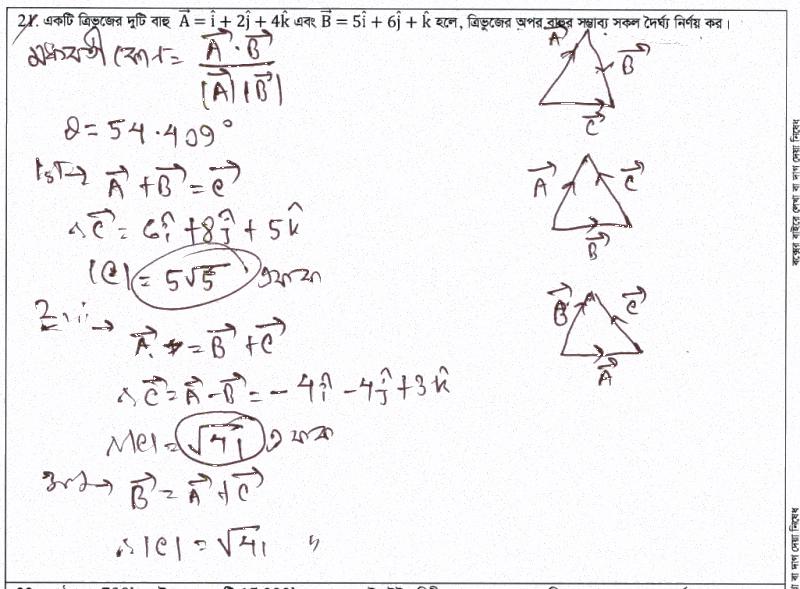 21. একটি ত্রিভুজের দুটি বাহু A⃗ = î + 2ĵ + 4k̂ এবং B⃗ = 5î + 6ĵ + k̂ হলে, ত্রিভুজের অপর বাহুর সম্ভাব্য সকল দৈর্ঘ্য নির্ণয় কর।
মধ্যবর্তী কোণ = A⃗ · B⃗ / |A⃗| |B⃗|
θ = 54.409°
1st → A⃗ + B⃗ = C⃗
∴ C⃗ = 6î + 8ĵ + 5k̂
|C| = 5√5 একক
2nd → A⃗ = B⃗ + C⃗
∴ C⃗ = A⃗ - B⃗ = -4î - 4ĵ + 3k̂
∴ |C| = √41 একক
3rd → B⃗ = A⃗ + C⃗
∴ |C| = √41 "
A⃗ B⃗
C⃗
A⃗ C⃗
B⃗
B⃗ C⃗
A⃗
বক্সের বাইরে লেখা বা দাগ দেয়া নিষেধ
বা দাগ দেয়া নিষেধ